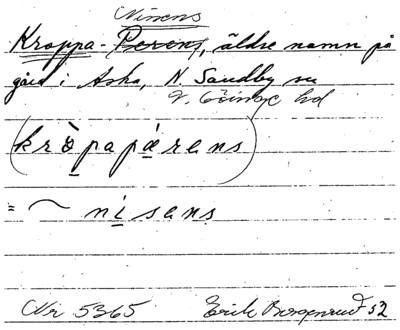 Nisens
Kroppa-Perens, äldre namn på
gård i Aska, N. Sandby sn
V. Göinge hd
(kròpapárens)
= ~ nisans
Nr 5365 Erik Borgenrud 32